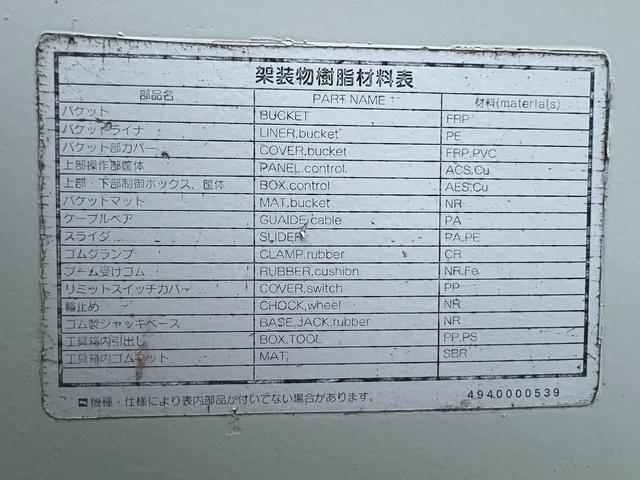 架装物樹脂材料表
部品名 PART NAME 材料(materials)
バケット BUCKET FRP
バケットライナ LINER,bucket PE
バケット部カバー COVER,bucket FRP,PVC
上部操作部筐体 PANEL,control, ACS,Cu
上部・下部制御ボックス、筐体 BOX,control AES,Cu
バケットマット MAT,bucket NR
ケーブルベア GUAIDE,cable PA
スライダ SLIDER PA,PE
ゴムクランプ CLAMP,rubber CR
ブーム受けゴム RUBBER,cushion NR,Fe
リミットスイッチカバー COVER,switch PP
輪止め CHOCK,wheel NR
ゴム製ジャッキベース BASE,JACK,rubber NR
工具箱内引出し BOX,TOOL PP,PS
工具箱内ゴムマット MAT, SBR
機種・仕様により表内部品が付いてない場合があります。 4940000539